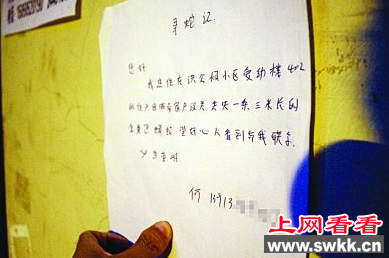 寻蛇记
您好
我是住在洪公祠小区劳动楼402
的住户因没有窗户没关走失一条三米长的
金黄色蟒蛇望好心人看到与我联系
必有重谢
何 13913
上网看看
www.swkk.cn